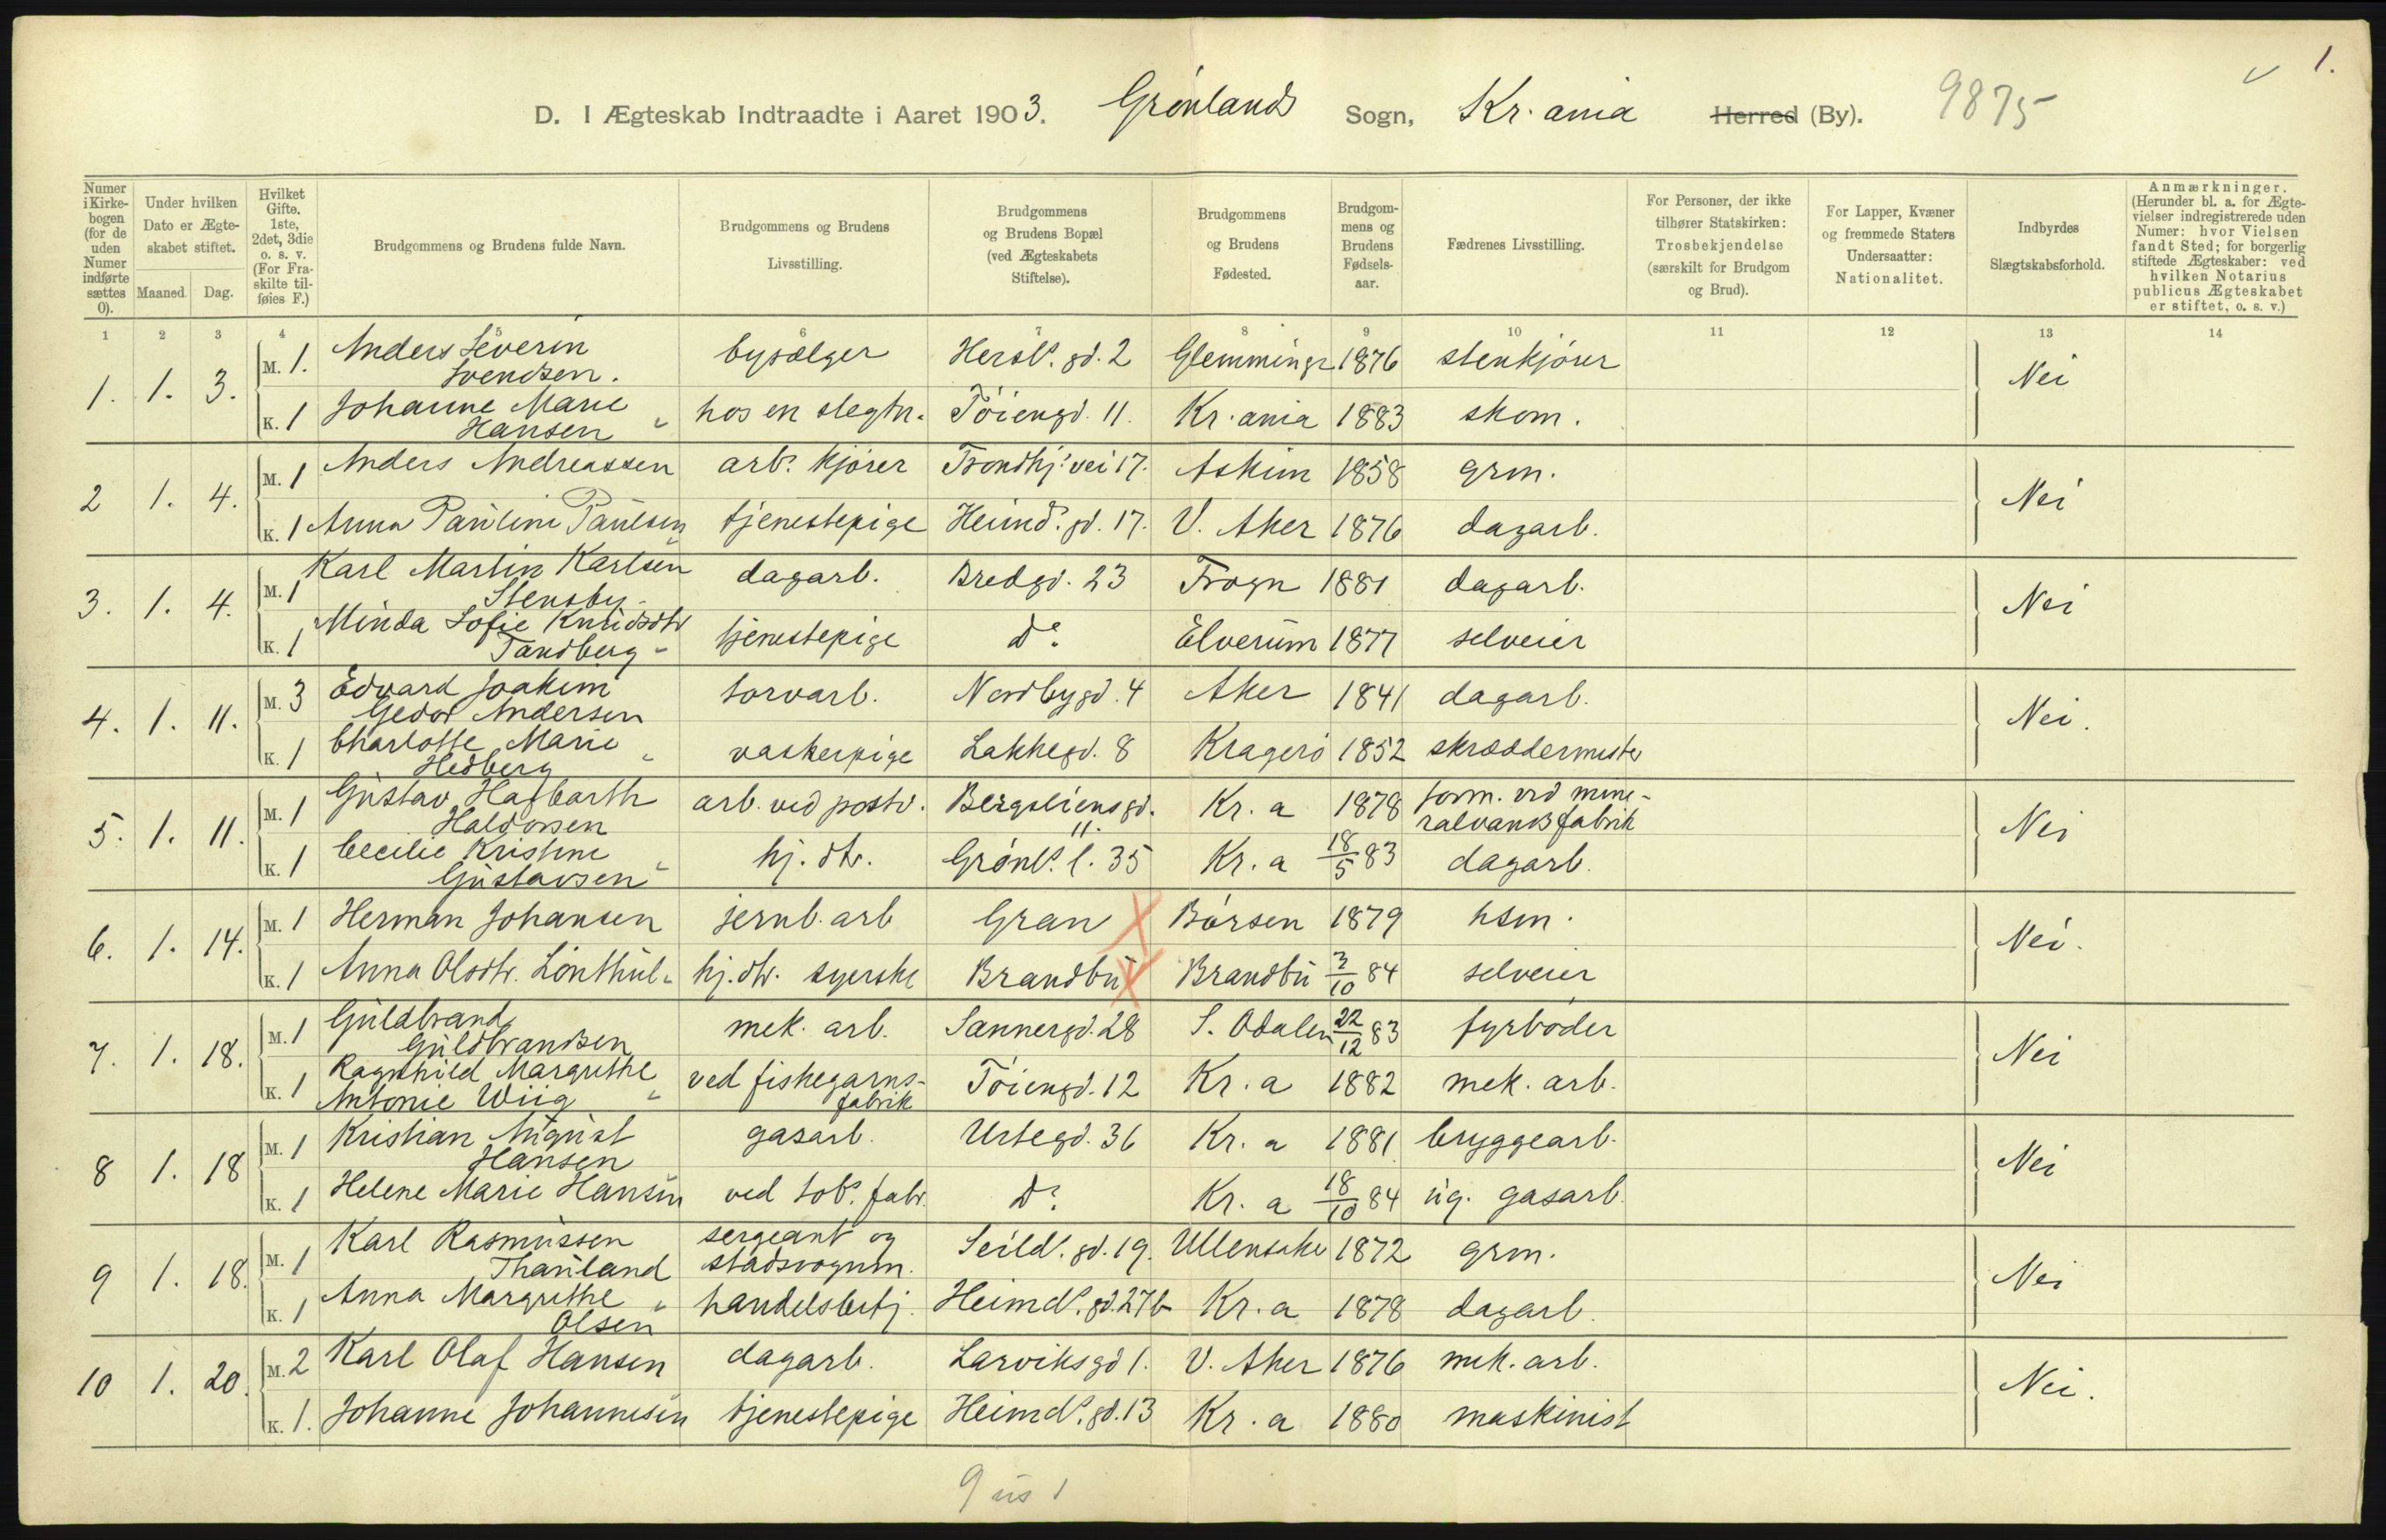 1.
D. I Ægteskab Indtraadte i Aaret 1903. Grønlands Sogn, Kr.ania Herred (By). 9875
Numer i Kirkebogen (for de uden Numer indførte sættes 0).
Under hvilken Dato er Ægteskabet stiftet.
Maaned. Dag.
Hvilket Gifte. 1ste, 2det, 3die o. s. v. (For Fraskilte tilføies F.)
Brudgommens og Brudens fulde Navn.
Brudgommens og Brudens Livsstilling.
Brudgommens og Brudens Bopæl (ved Ægteskabets Stiftelse).
Brudgommens og Brudens Fødested.
Brudgommens og Brudens Fødselsaar.
Fædrenes Livsstilling.
For Personer, der ikke tilhører Statskirken: Trosbekjendelse (særskilt for Brudgom og Brud).
For Lapper, Kvæner og fremmede Staters Undersaatter: Nationalitet.
Indbyrdes Slægtskabsforhold.
Anmærkninger. (Herunder bl. a. for Ægtevielser indregistrerede uden Numer: hvor Vielsen fandt Sted; for borgerlig stiftede Ægteskaber: ved hvilken Notarius publicus Ægteskabet er stiftet, o. s. v.)
1 2 3 4 5 6 7 8 9 10 11 12 13 14
1. 1. 3. M. 1. Anders Severin Svendsen. bysælger Hersl.s gd. 2 Glemminge 1876 stenkjører Nei
K. 1 Johanne Marie Hansen hos en slegtn. Tøiengd. 11. Kr.ania 1883 skom.
2 1. 4. M. 1 Anders Andreassen arb. kjører Trondhj.s vei 17. Askim 1858 grm. Nei
K. 1 Anna Pauline Paulsen tjenestepige Heimd.s gd. 17. V. Aker 1876 dagarb.
3. 1. 4. M. 1 Karl Martin Karlsen Stensby dagarb. Bredgd. 23 Frogn 1881 dagarb. Nei
K. 1 Minda Sofie Knudsdtr Tandberg tjenestepige Do. Elverum 1877 selveier
4. 1. 11. M. 3 Edvard Joakim Gedor Andersen torvarb. Nordbygd. 4 Aker 1841 dagarb. Nei.
K. 1 Charlotte Marie Hedberg vaskerpige Lakkegd. 8 Kragerø 1852 skræddermester
5. 1. 11. M. 1 Gustav Hagbarth Haldorsen arb. ved postv. Bergsliensgd. 11. Kr.a 1878 form. ved mineralvandsfabrik Nei
K. 1 Cecilie Kristine Gustavsen hj. dtr. Grønl.s l. 35 Kr.a 18/5 83 dagarb.
6. 1. 14. M. 1 Herman Johansen jernb. arb Gran Børsen 1879 hsm. Nei.
K. 1 Anna Olsdtr. Lønthul hj. dtr. syerske Brandbu Brandbu 3/10 84 selveier
7. 1. 18. M. 1 Guldbrand Guldbrandsen mek. arb. Sannergd. 28 S. Odalen 22/12 83 fyrbøder Nei
K. 1 Ragnhild Margrethe Antonie Wiig ved fiskegarnsfabrik Tøiengd. 12 Kr.a 1882 mek. arb.
8 1. 18 M. 1 Kristian August Hansen gasarb. Urtegd. 36 Kr.a 1881 bryggearb. Nei
K. 1 Helene Marie Hansen ved tob.s fabr. Do. Kr.a 18/10 84 ug. gasarb.
9 1. 18. M. 1 Karl Rasmussen Thauland sergeant og stadsvognm. Seild.s gd. 19. Ullensaker 1872 grm. Nei
K. 1 Anna Margrethe Olsen handelsbetj. Heimd.s gd. 27b Kr.a 1878 dagarb.
10 1. 20. M. 2 Karl Olaf Hansen dagarb. Larviksgd 1. V. Aker 1876 mek. arb. Nei.
K. 1. Johanne Johannesen tjenestepige Heimd.s gd. 13 Kr.a 1880 maskinist